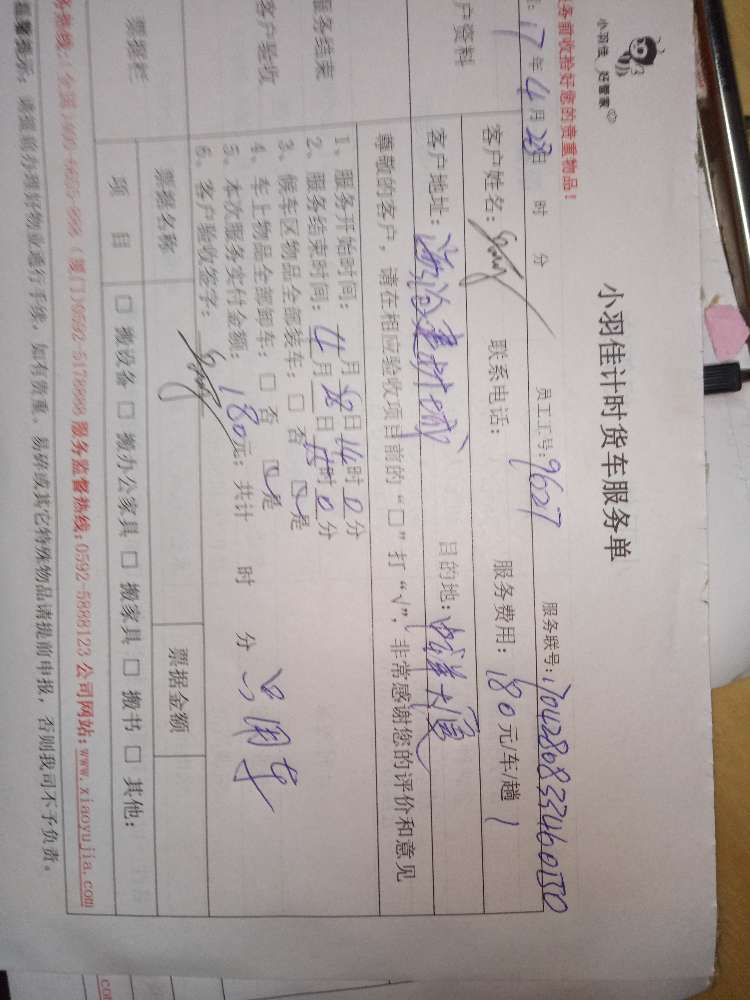 小羽佳 好管家
务前收拾好您的贵重物品！
小羽佳计时货车服务单
17年4月28日 时 分 员工工号：9627 服务联号：17042808334601550
户资料
客户姓名： 联系电话： 服务费用：180元/车/趟
客户地址： 建材城 目的地： 大厦
尊敬的客户，请在相应验收项目前的“□”打“√”，非常感谢您的评价和意见
服务结束
客户验收
1、服务开始时间： 月28日14时0分
2、服务结束时间：4月28日 时0分
3、候车区物品全部装车：□否 □是
4、车上物品全部卸车：□否 □是
5、本次服务实付金额：180元；共计 时 分 只用车
6、客户验收签字：
票据栏 票据名称 票据金额
项目 □搬设备 □搬办公家具 □搬家具 □搬书 □其他：
务热线：(全国)400-6655-888 (厦门)0592-5178888 服务监督热线：0592-5888123 公司网站：www.xiaoyujia.com
温馨提示：请提前办理好物业通行手续，如有贵重、易碎或其它特殊物品请提前申报，否则我司不予负责。
.com